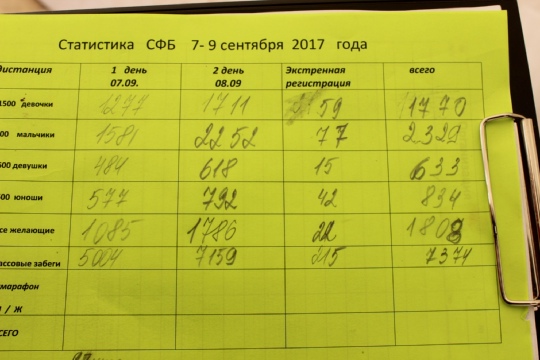 Статистика СФБ 7- 9 сентября 2017 года
истанция 1 день 07.09. 2 день 08.09 Экстренная регистрация всего
1500 девочки 1277 1711 59 1770
00 мальчики 1581 2252 77 2329
500 девушки 484 618 15 633
00 юноши 577 792 42 834
се желающие 1085 1786 22 1808
ассовые забеги 5004 7159 215 7374
марафон
/ Ж
СЕГО